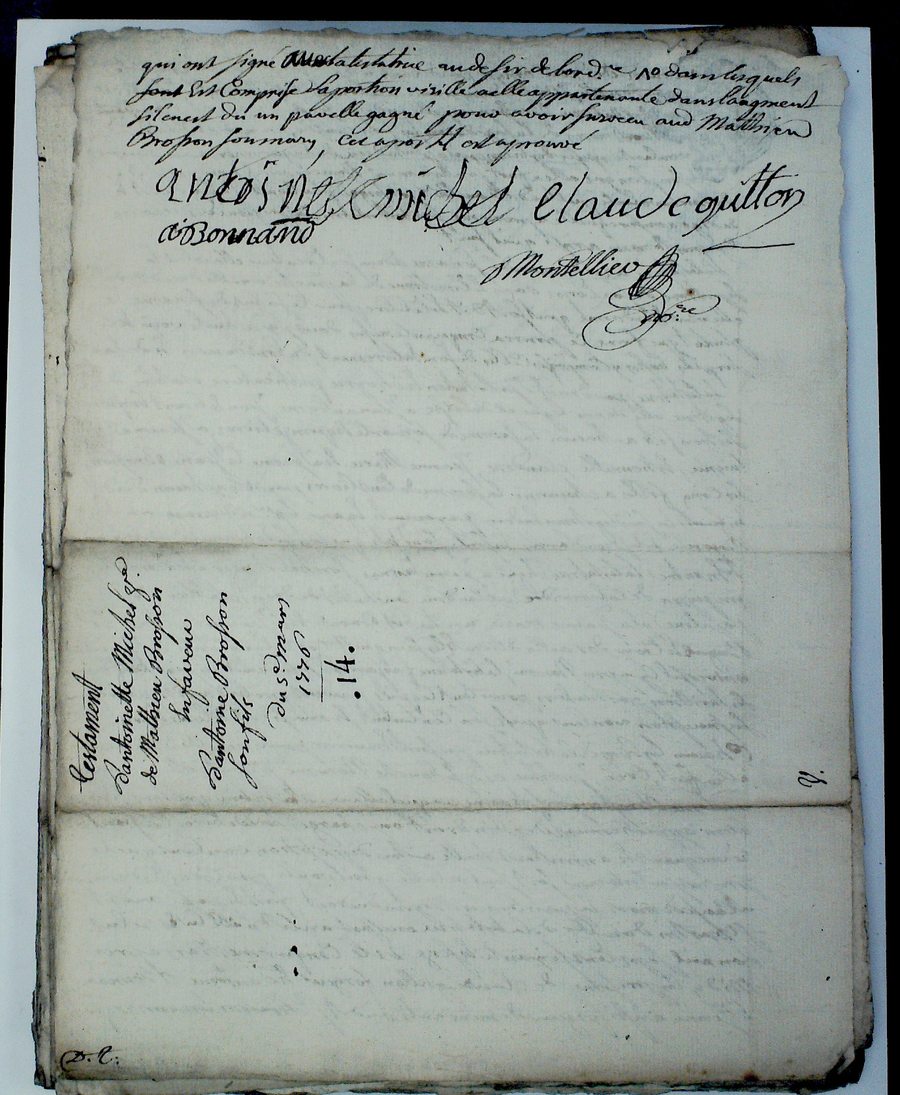 qui ont signé avec la testatrice au desir de lord.re no dans lesquels
sont Est Comprise La portion virille a elle appartenante dans laugment
silenest du un pareille gagné pour avoir survecu aud Mathieu
Brosson son mary, Cet apostil est aprouvé
antoinette michel Claude guitton
a Bonnand
Montellier
no.re
Testament
Dantoinette Michel
de Mathieu Brosson
Enfaveur
Dantoine Brosson
son fils
du 5.e mars
1776
.14.
D. t.